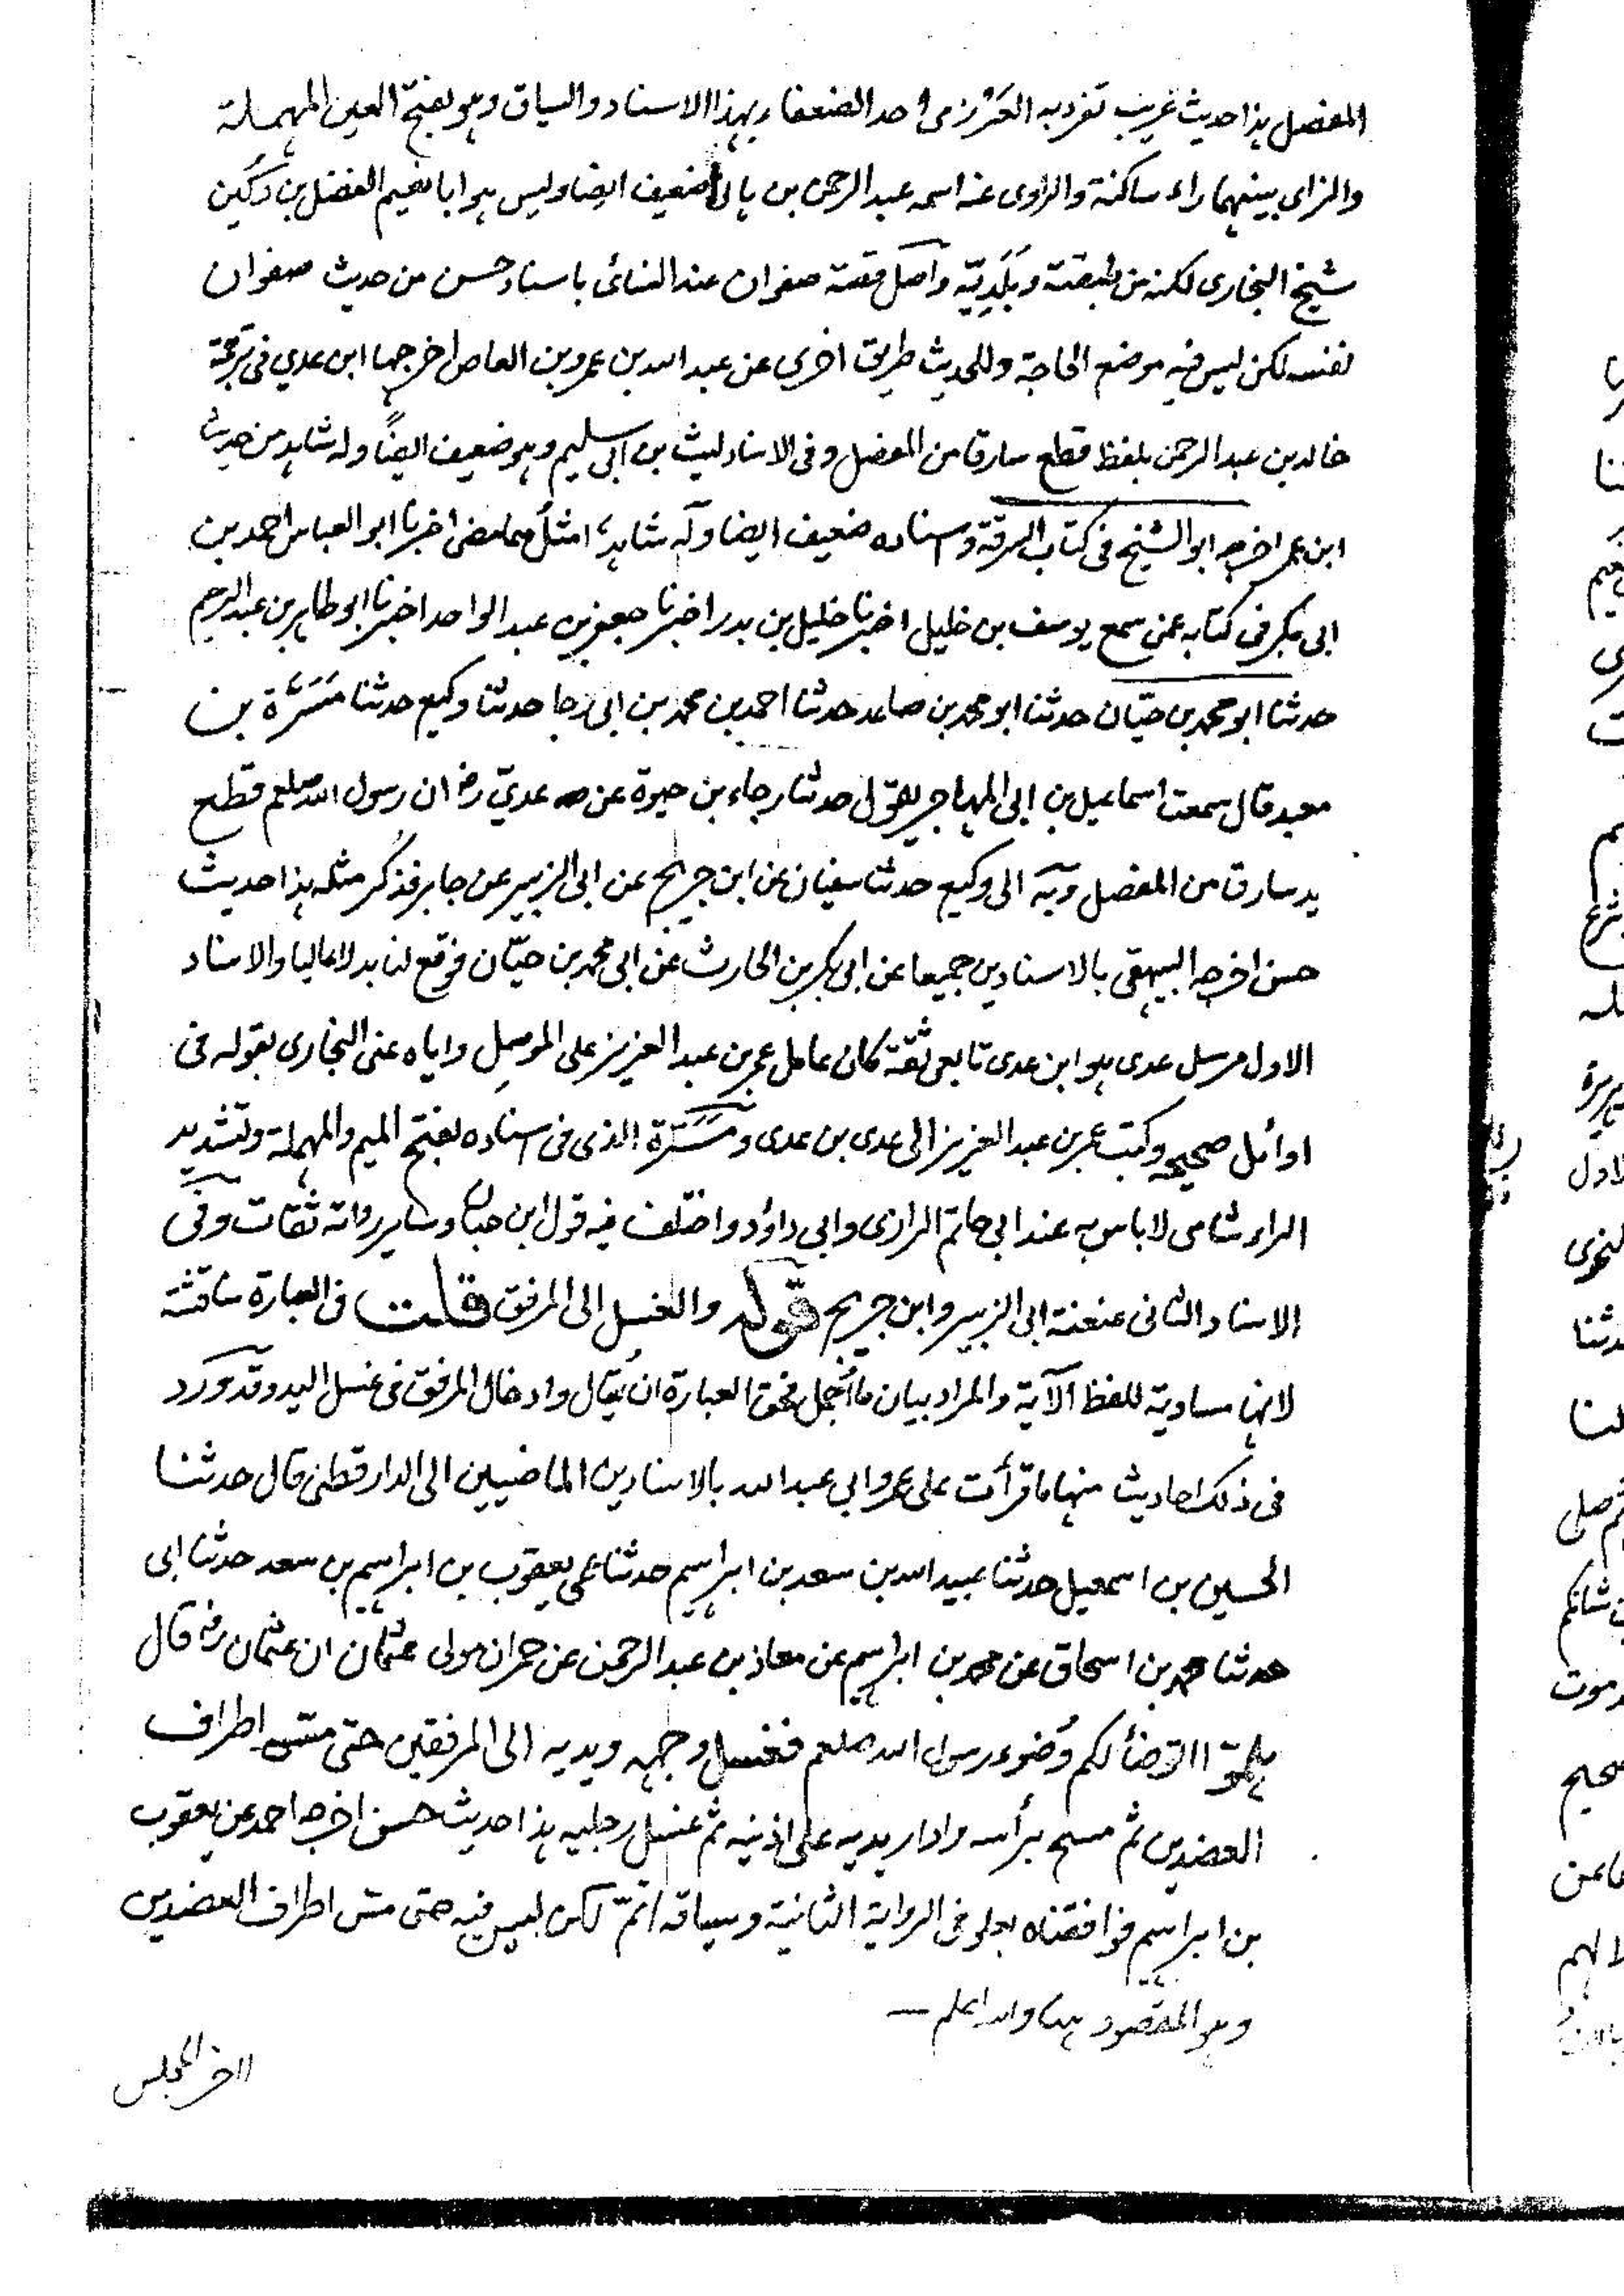 المفصل هذا حديث غريب تفرد به العَرْزمى احد الضعفاء بهذا الاسناد والسياق وهو بفتح العين المهملة
والزاى بينهما راء ساكنة والراوى عنه اسمه عبد الرحمن بن هانئ ضعيف ايضا وليس هو ابا نعيم الفضل بن دكين
شيخ البخارى لكنه من طبقته وبَلَدِيّه واصل قصة صفوان عند النسائى باسناد حسن من حديث صفوان
نفسه لكن ليس فيه موضع الحاجة وللحديث طريق اخرى عن عبد الله بن عمرو بن العاص اخرجها ابن عدي فى ترجمة
خالد بن عبد الرحمن بلفظ قطع سارقا من المفصل وفى الاسناد ليث بن ابى سليم وهو ضعيف ايضاً وله شاهد من حديث
ابن عمر اخرجه ابو الشيخ فى كتاب السرقة واسناده ضعيف ايضا وله شاهد امثل مما مضى اخبرنا ابو العباس احمد بن
ابى بكر فى كتابه عمن سمع يوسف بن خليل اخبرنا خليل بن بدر اخبرنا جعفر بن عبد الواحد اخبرنا ابو طاهر بن عبد الرحيم
حدثنا ابو محمد بن حيّان حدثنا ابو محمد بن صاعد حدثنا احمد بن محمد بن ابى رجا حدثنا وكيع حدثنا مَسَرَّة بن
معبد قال سمعت اسماعيل بن ابى المهاجر يقول حدثنا رجاء بن حيوة عن عديّ رض ان رسول الله صلعم قطع
يد سارق من المفصل وبه الى وكيع حدثنا سفيان عن ابن جريج عن ابى الزبير عن جابر فذكر مثله هذا حديث
حسن اخرجه البيهقى بالاسنادين جميعا عن ابى بكر بن الحارث عن ابى محمد بن حيّان فوقع لنا بدلا عاليا والاسناد
الاول مرسل عدى هو ابن عدى تابعى ثقة كان عامل عمر بن عبد العزيز على الموصل واياه عنى البخارى بقوله فى
اوائل صحيحه وكتب عمر بن عبد العزيز الى عدى بن عدى ومَسَرّة الذى فى اسناده بفتح الميم والمهملة وتشديد
الراء شامى لا باس به عند ابى حاتم الرازى وابى داؤد واختلف فيه قول ابن حبان وساير رواته ثقات وفى
الاسناد الثانى عنعنة ابى الزبير وابن جريج قوله والغسل الى المرفق قلت فى العبارة مناقشة
لانها مساوية للفظ الآية والمراد بيان ما اُجمل فحق العبارة ان يقال وادخال المرفق فى غسل اليد وقد ورد
فى ذلك احاديث منها ما قرأت على عمر وابي عبد الله بالاسنادين الماضيين الى الدارقطنى قال حدثنا
الحسين بن اسمعيل حدثنا عبيد الله بن سعد بن ابراهيم حدثنا عمى يعقوب بن ابراهيم بن سعد حدثنا ابى
حدثنا محمد بن اسحاق عن محمد بن ابراهيم عن معاذ بن عبد الرحمن عن حمران مولى عثمان ان عثمان رض قال
هلموّا اتوضأ لكم وُضوء رسول الله صلعم فغسل وجهه ويديه الى المرفقين حتى مسّ اطراف
العضدين ثم مسح برأسه وادار يديه على اذنيه ثم غسل رجليه هذا حديث حسن اخرجه احمد عن يعقوب
بن ابراهيم فوافقناه بعلو فى الرواية الثانية وسياقه اتمّ لكن ليس فيه حتى مسّ اطراف العضدين
وهو المقصود هنا والله اعلم —
اٰخر المجلس